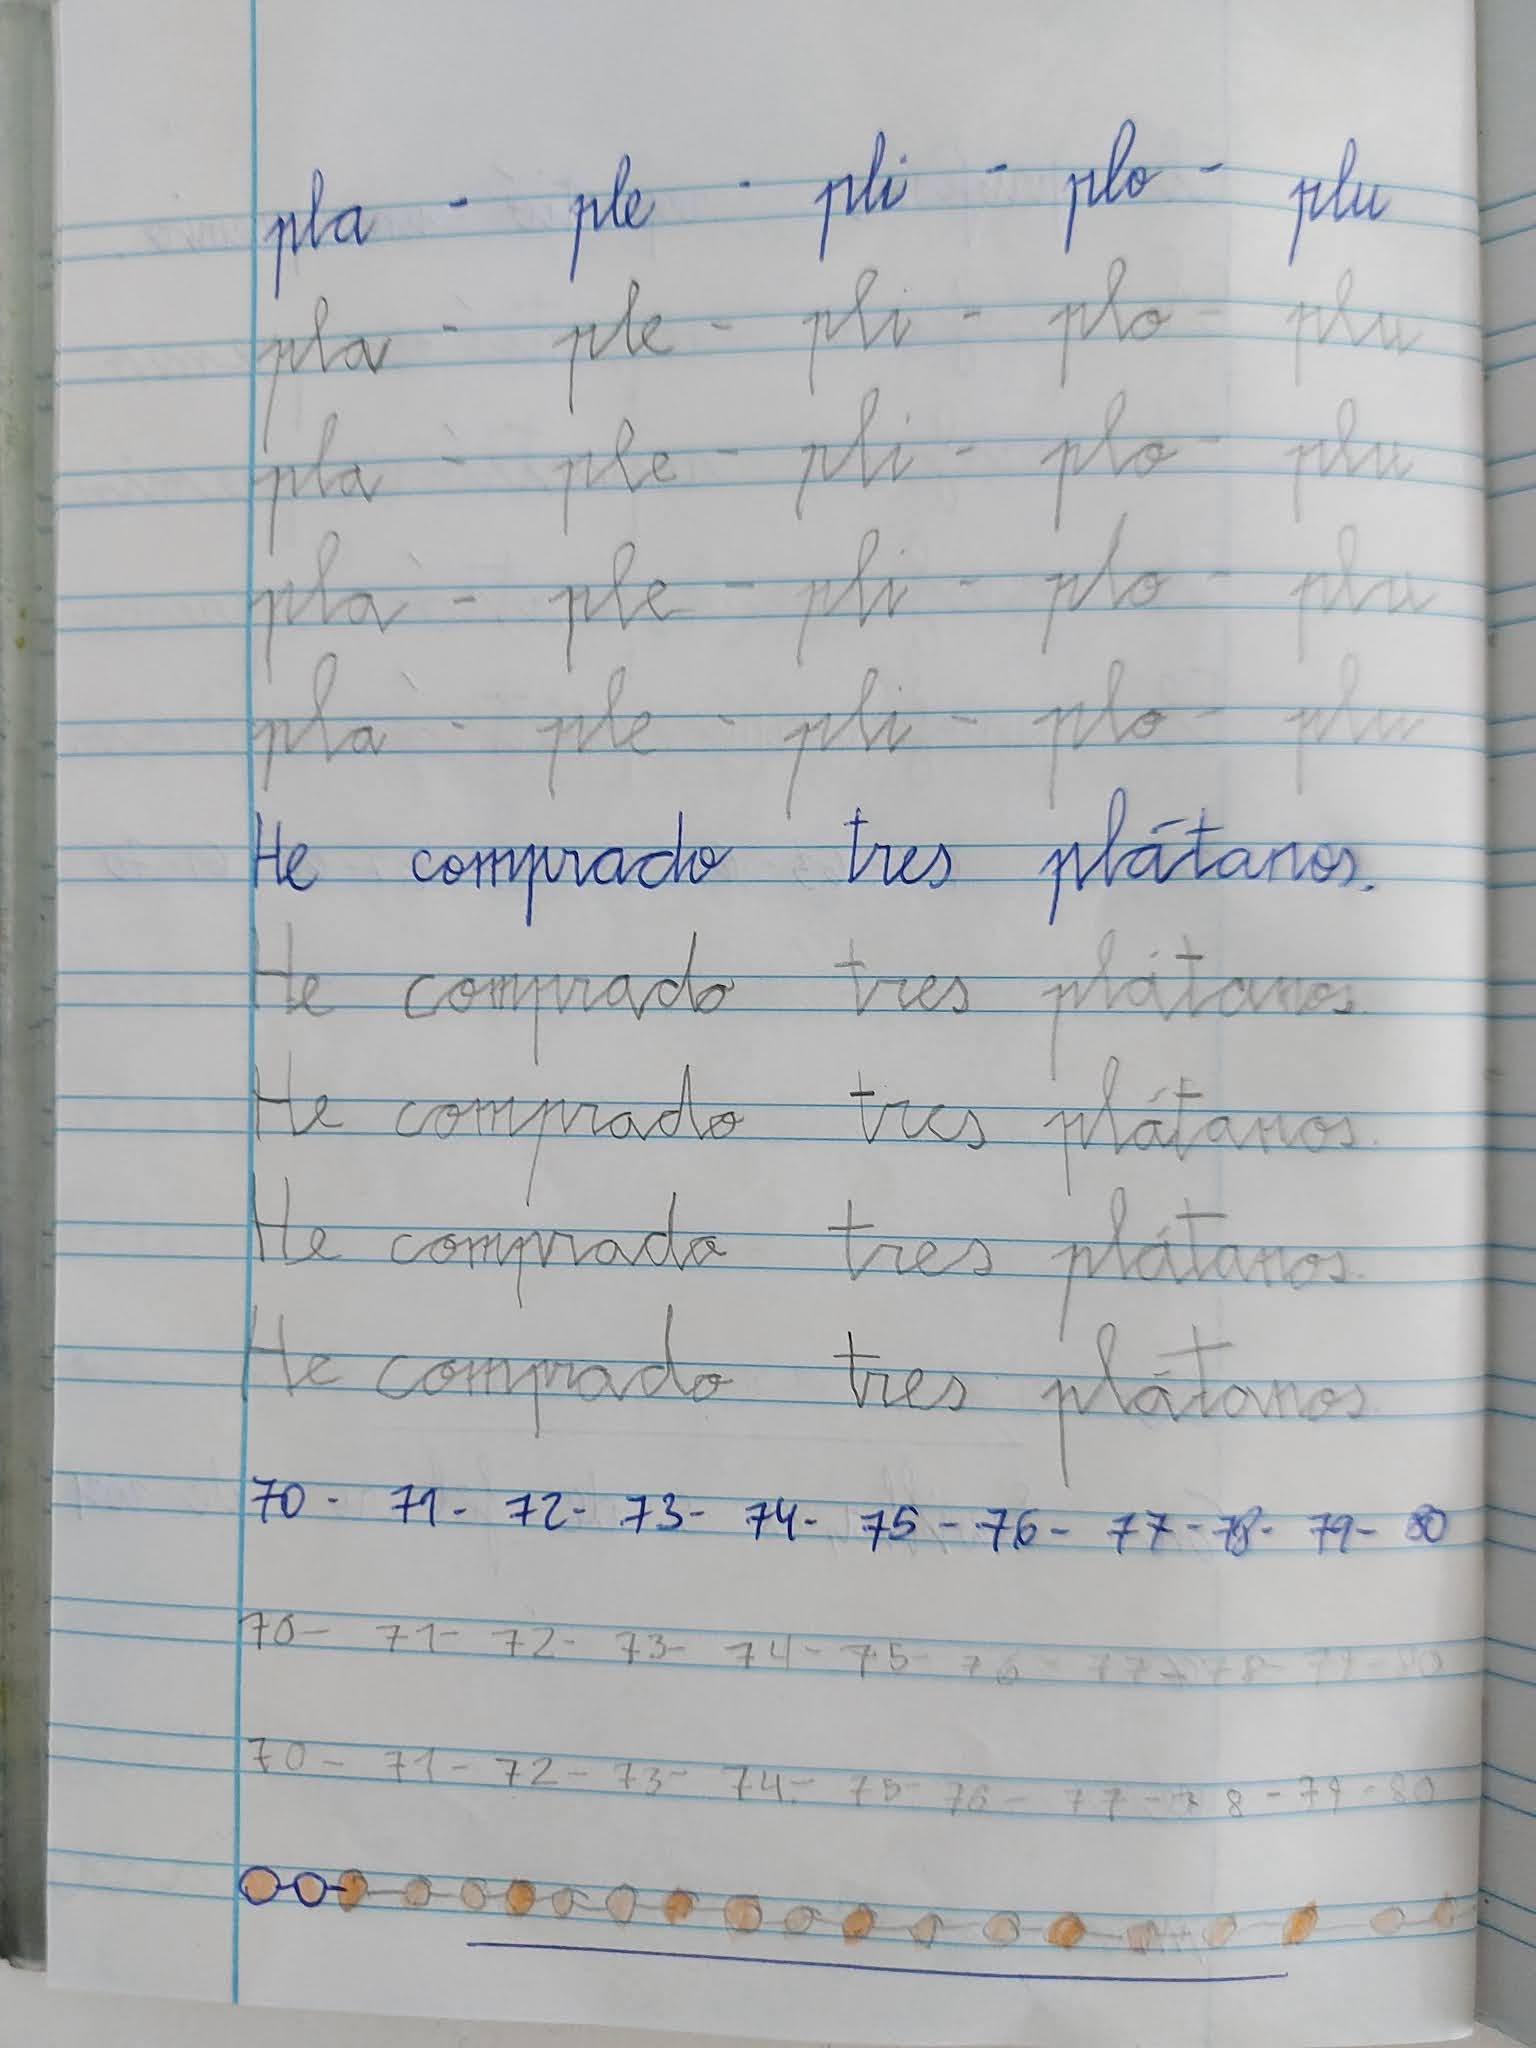 pla - ple - pli - plo - plu
pla - ple - pli - plo - plu
pla - ple - pli - plo - plu
pla - ple - pli - plo - plu
pla - ple - pli - plo - plu
He comprado tres plátanos.
He comprado tres plátanos.
He comprado tres plátanos.
He comprado tres plátanos.
He comprado tres plátanos
70 - 71 - 72 - 73 - 74 - 75 - 76 - 77 - 78 - 79 - 80
70 - 71 - 72 - 73 - 74 - 75 - 76 - 77 - 78 - 79 - 80
70 - 71 - 72 - 73 - 74 - 75 - 76 - 77 - 78 - 79 - 80